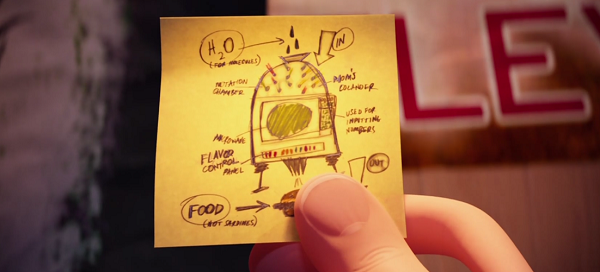 H2O
(FOR MOLECULES)
IN
MUTATION
CHAMBER
MOM'S
COLANDER
USED FOR
INPUTTING
NUMBERS
MICROWAVE
FLAVOR
CONTROL
PANEL
OUT
FOOD
(NOT SARDINES)
LEY